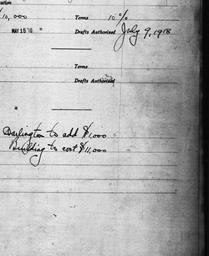 10,000 Terms 10%
MAY 15 18 Drafts Authorized July 9, 1918
Terms
Drafts Authorized
Darlington to add $1,000
Building to cost $11,000